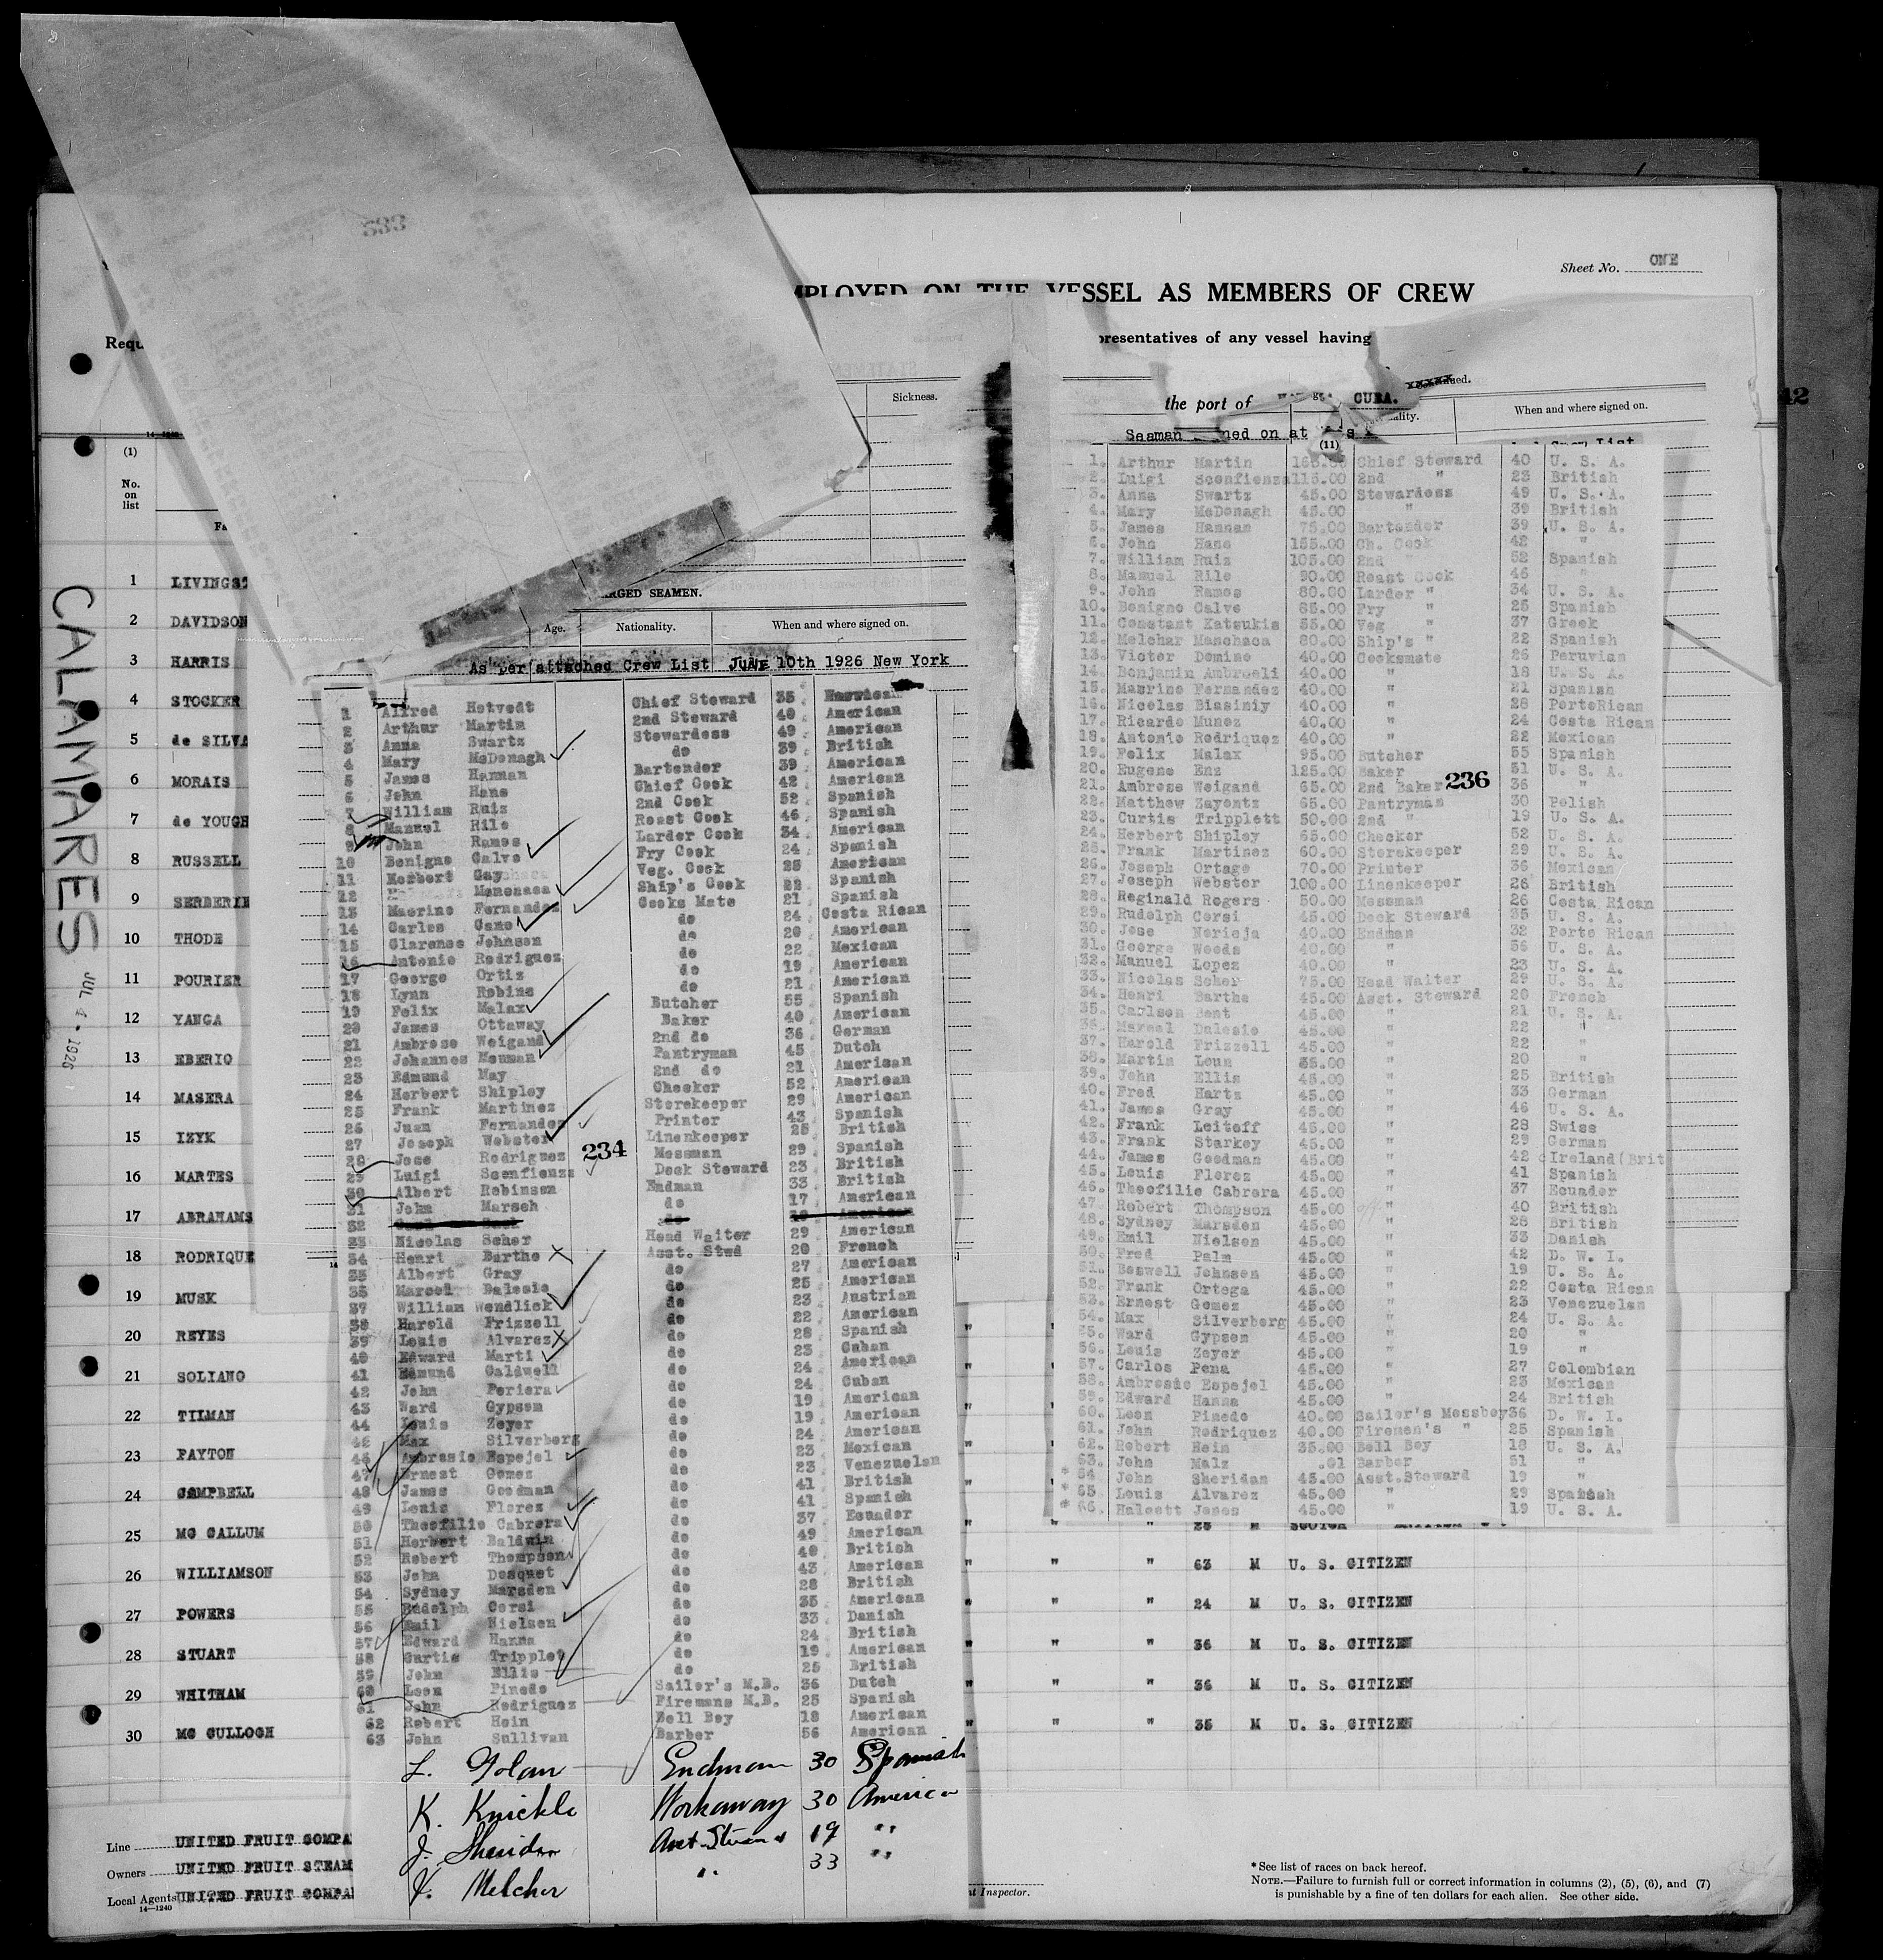 Sheet No. ONE
VESSEL AS MEMBERS OF CREW
presentatives of any vessel having
the port of CUBA.
Sickness.
When and where signed on.
42
(1)
No.
on
list
CALAMARES
JUL 4 - 1926
1 LIVINGST
2 DAVIDSON
3 HARRIS
4 STOCKER
5 de SILVA
6 MORAIS
7 de YOUGH
8 RUSSELL
9 SERBERIE
10 THODE
11 POURIER
12 YANGA
13 EBERIO
14 MASERA
15 IZYK
16 MARTES
17 ABRAHAMS
18 RODRIQUE
19 MUSK
20 REYES
21 SOLIANO
22 TILMAN
23 PAYTON
24 CAMPBELL
25 MC CALLUM
26 WILLIAMSON
27 POWERS
28 STUART
29 WHITHAM
30 MC CULLOGH
Line UNITED FRUIT COMPA
Owners UNITED FRUIT STEAM
Local Agents UNITED FRUIT COMPA
14—1240
RGED SEAMEN.
Age. Nationality. When and where signed on.
As per attached Crew List JUNE 10th 1926 New York
1 Alfred Hetvedt Chief Steward 35
2 Arthur Martin 2nd Steward 40 American
3 Anna Swartz Stewardess 49 American
4 Mary McDonagh do 39 British
5 James Hannan Bartender 39 American
6 John Hans Chief Cook 42 American
7 William Ruiz 2nd Cook 52 Spanish
8 Manuel Rile Roast Cook 46 Spanish
9 John Ramos Larder Cook 34 American
10 Benigno Calvo Fry Cook 24 Spanish
11 Herbert Gay Veg. Cook 25 American
12 Menchaca Ship's Cook 22 Spanish
13 Maurino Fernandez Cooks Mate 21 Spanish
14 Carlos Cano do 24 Costa Rican
15 Clarence Johnson do 20 American
16 Antonio Rodriguez do 22 Mexican
17 George Ortiz do 19 American
18 Lynn Robins do 21 American
19 Felix Malax Butcher 55 Spanish
20 James Ottaway Baker 40 American
21 Ambrose Weigand 2nd do 36 German
22 Johannes Mouman Pantryman 45 Dutch
23 Edmund May 2nd do 21 American
24 Herbert Shipley Checker 52 American
25 Frank Martinez Storekeeper 29 American
26 Juan Fernandez Printer 43 Spanish
27 Joseph Webster Linenkeeper 25 British
28 Jose Rodriguez Messman 29 Spanish
29 Luigi Sconfienza Deck Steward 23 British
30 Albert Robinson Endman 33 British
31 John Marsch do 17 American
32
33 Nicolas Scher Head Waiter 29 American
34 Henri Barthe Asst. Stwd 20 French
35 Albert Gray do 27 American
36 Marcel Dalesio do 25 American
37 William Wendlick do 23 Austrian
38 Harold Frizzell do 22 American
39 Louis Alvarez do 28 Spanish
40 Edward Marti do 23 Cuban
41 Edmund Caldwell do 24 American
42 John Periera do 24 Cuban
43 Ward Gypson do 19 American
44 Louis Zeyer do 19 American
45 Max Silverberg do 24 American
46 Ambrosio Espejel do 23 Mexican
47 Ernest Gomez do 23 Venezuelan
48 James Goodman do 41 British
49 Louis Florez do 41 Spanish
50 Theofilio Cabrera do 37 Ecuador
51 Herbert Baldwin do 49 American
52 Robert Thompson do 40 British
53 John Dosquet do 43 American
54 Sydney Marsden do 28 British
55 Rudolph Corsi do 35 American
56 Emil Nielsen do 33 Danish
57 Edward Hanna do 24 British
58 Curtis Tripplet do 19 American
59 John Ellis do 25 British
60 Leon Pinedo Sailor's M.B. 36 Dutch
61 John Rodriguez Firemans M.B. 25 Spanish
62 Robert Hein Bell Boy 18 American
63 John Sullivan Barber 56 American
L. Endman 30 Spanish
K. Knickle Workaway 30 America
J. Sheridan Asst. 19 "
Melcher " 33 "
234
Seaman on at
(11)
1. Arthur Martin Chief Steward 40 U. S. A.
2. Luigi Sconfienza 115.00 2nd " 23 British
3. Anna Swartz 45.00 Stewardess 49 U. S. A.
4. Mary McDonagh 45.00 " 39 British
5. James Hannan 75.00 Bartender 39 U. S. A.
6. John Hans 155.00 Ch. Cook 42 "
7. William Ruiz 105.00 2nd " 52 Spanish
8. Manuel Rile 90.00 Roast Cook 46 "
9. John Ramos 80.00 Larder " 34 U. S. A.
10. Benigno Calvo 65.00 Fry " 25 Spanish
11. Constant Katsukis 55.00 Veg " 37 Greek
12. Melchar Manchaca 80.00 Ship's " 22 Spanish
13. Victor Domino 40.00 Cooksmate 26 Peruvian
14. Benjamin Ambroeli 40.00 " 18 U. S. A.
15. Maurino Fernandez 40.00 " 21 Spanish
16. Nicolas Biasiniy 40.00 " 28 PortoRican
17. Ricardo Munoz 40.00 " 24 Costa Rican
18. Antonio Rodriquez 40.00 " 22 Mexican
19. Felix Malax 95.00 Butcher 55 Spanish
20. Eugene Enz 125.00 Baker 51 U. S. A.
21. Ambrose Weigand 65.00 2nd Baker 36 "
22. Matthew Zayontz 65.00 Pantryman 30 Polish
23. Curtis Tripplett 50.00 2nd " 19 U. S. A.
24. Herbert Shipley 65.00 Checker 52 U. S. A.
25. Frank Martinez 60.00 Storekeeper 29 U. S. A.
26. Joseph Ortage 70.00 Printer 36 Mexican
27. Joseph Webster 100.00 Linenkeeper 26 British
28. Reginald Rogers 50.00 Messman 26 Costa Rican
29. Rudolph Corsi 45.00 Deck Steward 35 U. S. A.
30. Jose Norieja 40.00 Endman 32 Porto Rican
31. George Woods 40.00 " 56 U. S. A.
32. Manuel Lopez 40.00 " 23 U. S. A.
33. Nicolas Scher 75.00 Head Waiter 29 U. S. A.
34. Henri Barthe 45.00 Asst. Steward 20 French
35. Carlson Bent 45.00 " 21 U. S. A.
36. Marcel Dalesio 45.00 " 22 "
37. Harold Frizzell 45.00 " 22 "
38. Martin Loun 35.00 " 20 "
39. John Ellis 45.00 " 25 British
40. Fred Hartz 45.00 " 33 German
41. James Gray 45.00 " 46 U. S. A.
42. Frank Leitoff 45.00 " 28 Swiss
43. Frank Starkey 45.00 " 29 German
44. James Goodman 45.00 " 42 Ireland(Brit
45. Louis Florez 45.00 " 41 Spanish
46. Theofilio Cabrera 45.00 " 37 Ecuador
47. Robert Thompson 45.00 " 40 British
48. Sydney Marsden 45.00 " 28 British
49. Emil Nielsen 45.00 " 33 Danish
50. Fred Palm 45.00 " 42 D. W. I.
51. Boswell Johnson 45.00 " 19 U. S. A.
52. Frank Ortega 45.00 " 22 Costa Rican
53. Ernest Gomez 45.00 " 23 Venezuelan
54. Max Silverberg 45.00 " 24 U. S. A.
55. Ward Gypson 45.00 " 20 "
56. Louis Zeyer 45.00 " 19 "
57. Carlos Pena 45.00 " 27 Colombian
58. Ambrosio Espejel 45.00 " 23 Mexican
59. Edward Hanna 45.00 " 24 British
60. Leon Pinedo 40.00 Sailor's Messboy 36 D. W. I.
61. John Rodriquez 40.00 Firemen's " 25 Spanish
62. Robert Hein 35.00 Bell Boy 18 U. S. A.
63. John Malz .01 Barber 51 "
* 64. John Sheridan 45.00 Asst.Steward 19 "
* 65. Louis Alvarez 45.00 " 29 Spanish
* 66. Halcott Jones 45.00 " 19 U. S. A.
236
" " " 63 M U. S. CITIZEN
" " " 24 M U. S. CITIZEN
" " " 36 M U. S. CITIZEN
" " " 36 M U. S. CITIZEN
" " " 35 M U. S. CITIZEN
nt Inspector.
*See list of races on back hereof.
NOTE.—Failure to furnish full or correct information in columns (2), (5), (6), and (7)
is punishable by a fine of ten dollars for each alien. See other side.